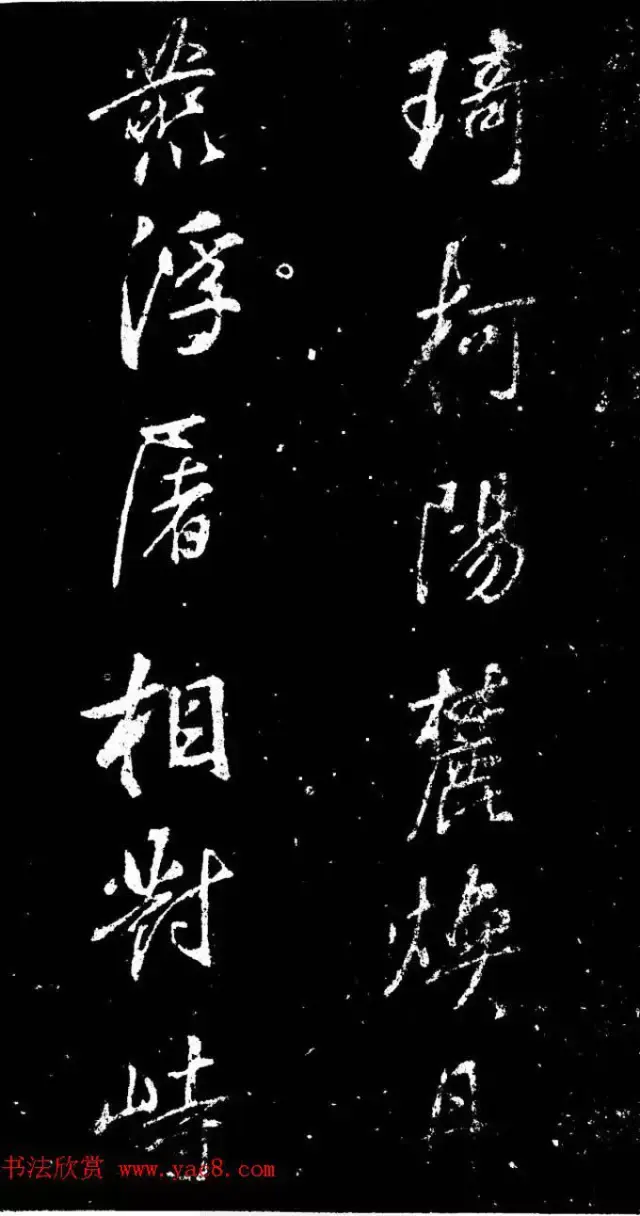 琦陽麓煥日
叢浮屠相對峙
书法欣赏 www.yac8.com